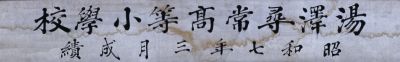 湯澤尋常髙等小學校
昭和七年三月成績